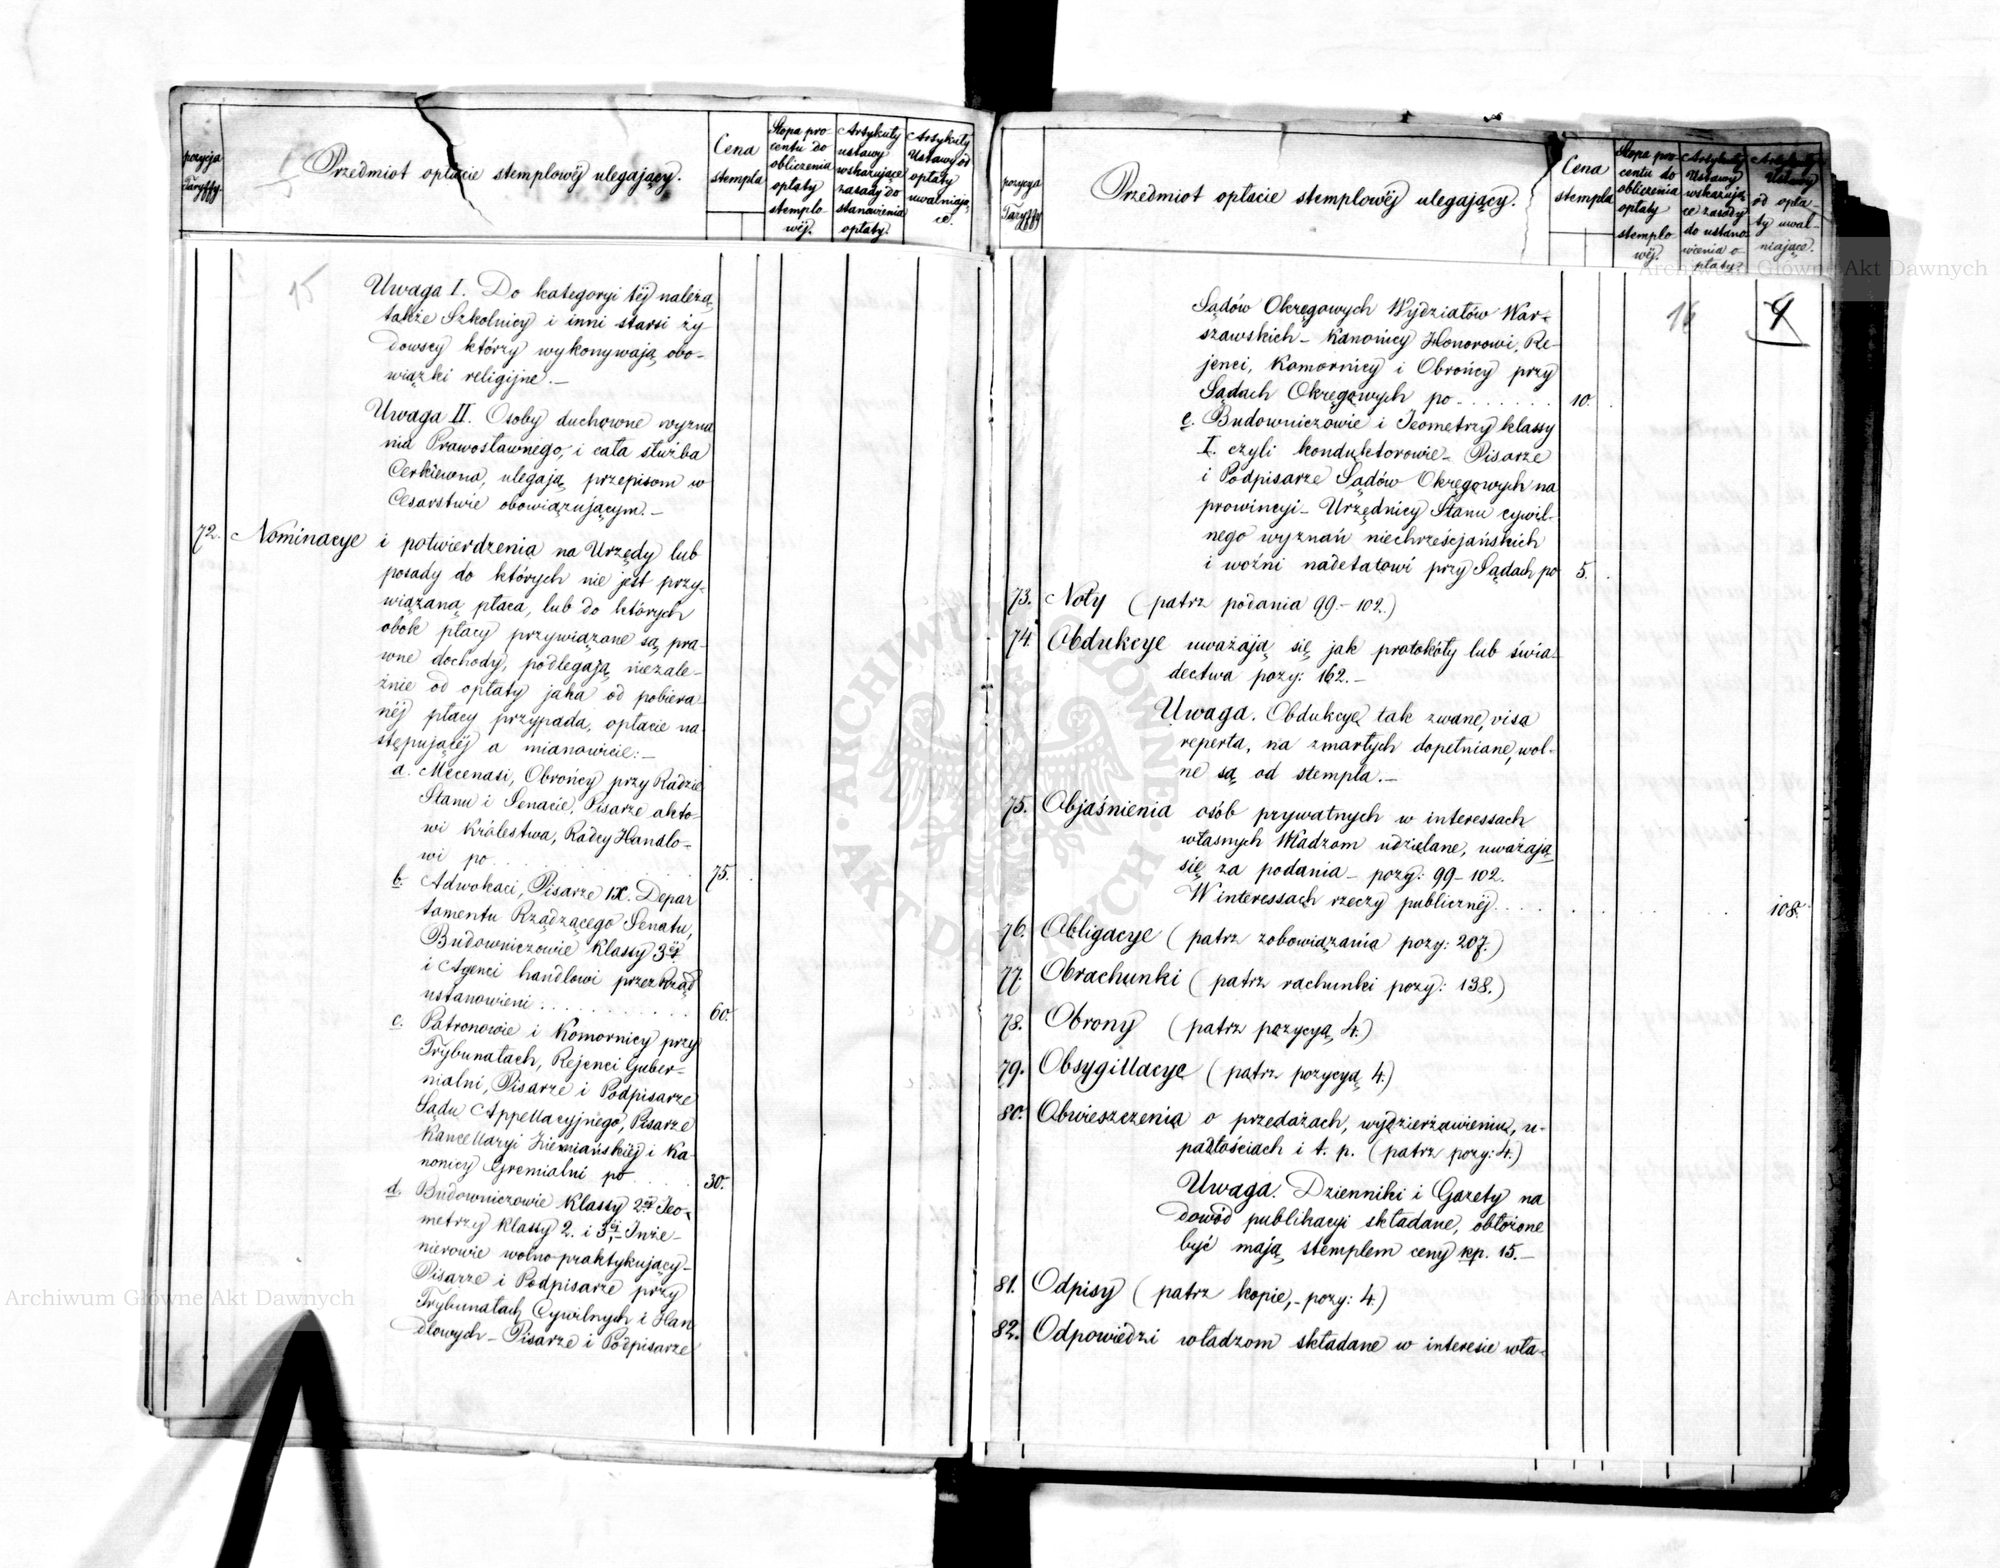 pozycja
Taryffy.
Przedmiot opłacie stemplowéj ulegający.
Cena
stempla
Stopa pro-
centu do
obliczenia
opłaty
stemplo-
wéj.
Artykuły
ustawy
wskazujące
zasady do
stanowienia
opłaty.
Artykuły
Ustawy od
opłaty
uwalniają
ce.
15
Uwaga I. Do kategoryi téj należą
także Szkolnicy i inni starsi ży
dowscy którzy wykonywają obo-
wiązki religijne.—
Uwaga II. Osoby duchowne wyzna
nia Prawosławnego, i cała służba
Cerkiewna, ulegają przepisom w
Cesarstwie obowiązującym.—
72. Nominacye i potwierdzenia na Urzędy lub
posady do których nie jest przy-
wiązaną płaca, lub do których
obok płacy przywiązane są pra-
wne dochody, podlegają niezale-
żnie od opłaty jaka od pobiera
néj płacy przypada, opłacie na
stępującéj a mianowicie:—
a. Mecenasi, Obrońcy przy Radzie
Stanu i Senacie, Pisarze akto-
wi Królestwa, Radcy Handlo-
wi po . . . . . . . . . 75.
b. Adwokaci, Pisarze IX. Depar
tamentu Rządzącego Senatu,
Budowniczowie Klassy 3éj
i Agenci handlowi przez Rząd
ustanowieni . . . . . . . . . 60.
c. Patronowie i Komornicy przy
Trybunałach, Rejenci Guber-
nialni, Pisarze i Podpisarze
Sądu Appellacyjnego, Pisarze
Kancellaryi Ziemiańskiéj i Ka-
nonicy Gremialni po . . . . 30.
d. Budowniczowie Klassy 2éj Jeo-
metrzy klassy 2. i 3éj Inże-
nierowie wolno-praktykujący—
Pisarze i Podpisarze przy
Trybunałach Cywilnych i Han
dlowych— Pisarze i Podpisarze
pozycya
Taryffy
Przedmiot opłacie stemplowéj ulegający.
Cena
stempla
Stopa pro-
centu do
obliczenia
opłaty
stemplo-
wéj.
Artykuły
Ustawy
wskazują
ce zasady
do ustano-
wienia o-
płaty?
Artykuły
Ustawy
od opła
ty uwal-
niające.
16
9
Sądów Okręgowych Wydziałów War-
szawskich— Kanonicy Honorowi, Re-
jenci, Komornicy i Obrońcy przy
Sądach Okręgowych po . . . . . . . 10.
e. Budowniczowie i Jeometrzy klassy
I. czyli konduktorowie— Pisarze
i Podpisarze Sądów Okręgowych na
prowincyi— Urzędnicy Stanu cywil-
nego wyznań niechrześcjańskich
i woźni nadetatowi przy Sądach po 5.
73. Noty (patrz podania 99.—102.)
74. Obdukcye uważają się jak protokóły lub świa
dectwa pozy: 162.—
Uwaga. Obdukcye tak zwane, visa
reperta, na zmarłych dopełniane, wol-
ne są od stempla.—
75. Objaśnienia osób prywatnych w interessach
własnych Władzom udzielane, uważają
się za podania— pozy: 99—102.
W interessach rzeczy publicznéj . . . . . . . . 108.
76. Obligacye (patrz zobowiązania pozy: 207.)
77. Obrachunki (patrz rachunki pozy: 138.)
78. Obrony (patrz pozycyą 4.)
79. Obsygillacye (patrz pozycyą 4.)
80. Obwieszczenia o przedażach, wydzierżawieniu, u-
padłościach i t. p. (patrz pozy: 4.)
Uwaga. Dzienniki i Gazety na
dowód publikacyi składane, obłożone
być mają stemplem ceny kp. 15.—
81. Odpisy (patrz kopie,— pozy: 4.)
82. Odpowiedzi władzom składane w interesie wła-
ARCHIWUM GŁÓWNE AKT DAWNYCH
Archiwum Główne Akt Dawnych
Archiwum Główne Akt Dawnych